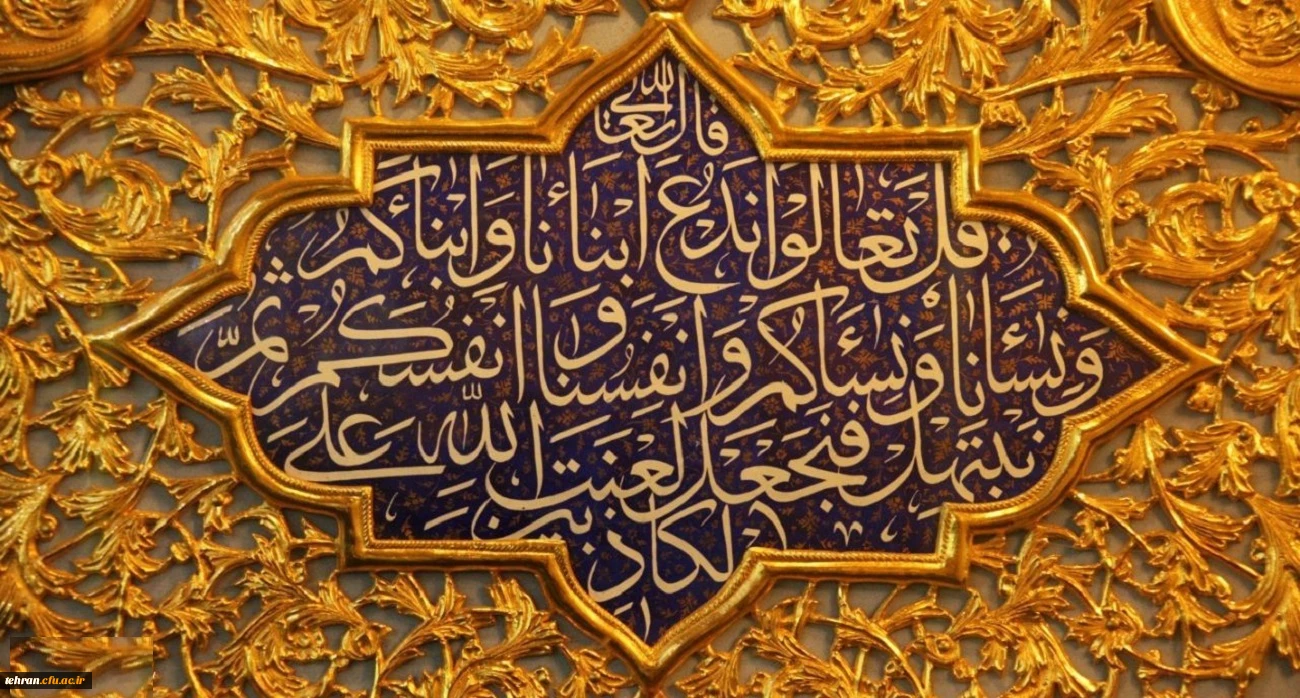 قال الله تعالى
قل تعالوا ندع ابنائنا وابنائكم
ونسائنا ونسائكم وانفسنا وانفسكم ثم
نبتهل فنجعل لعنت الله على
الكاذبين
tehran.cfu.ac.ir